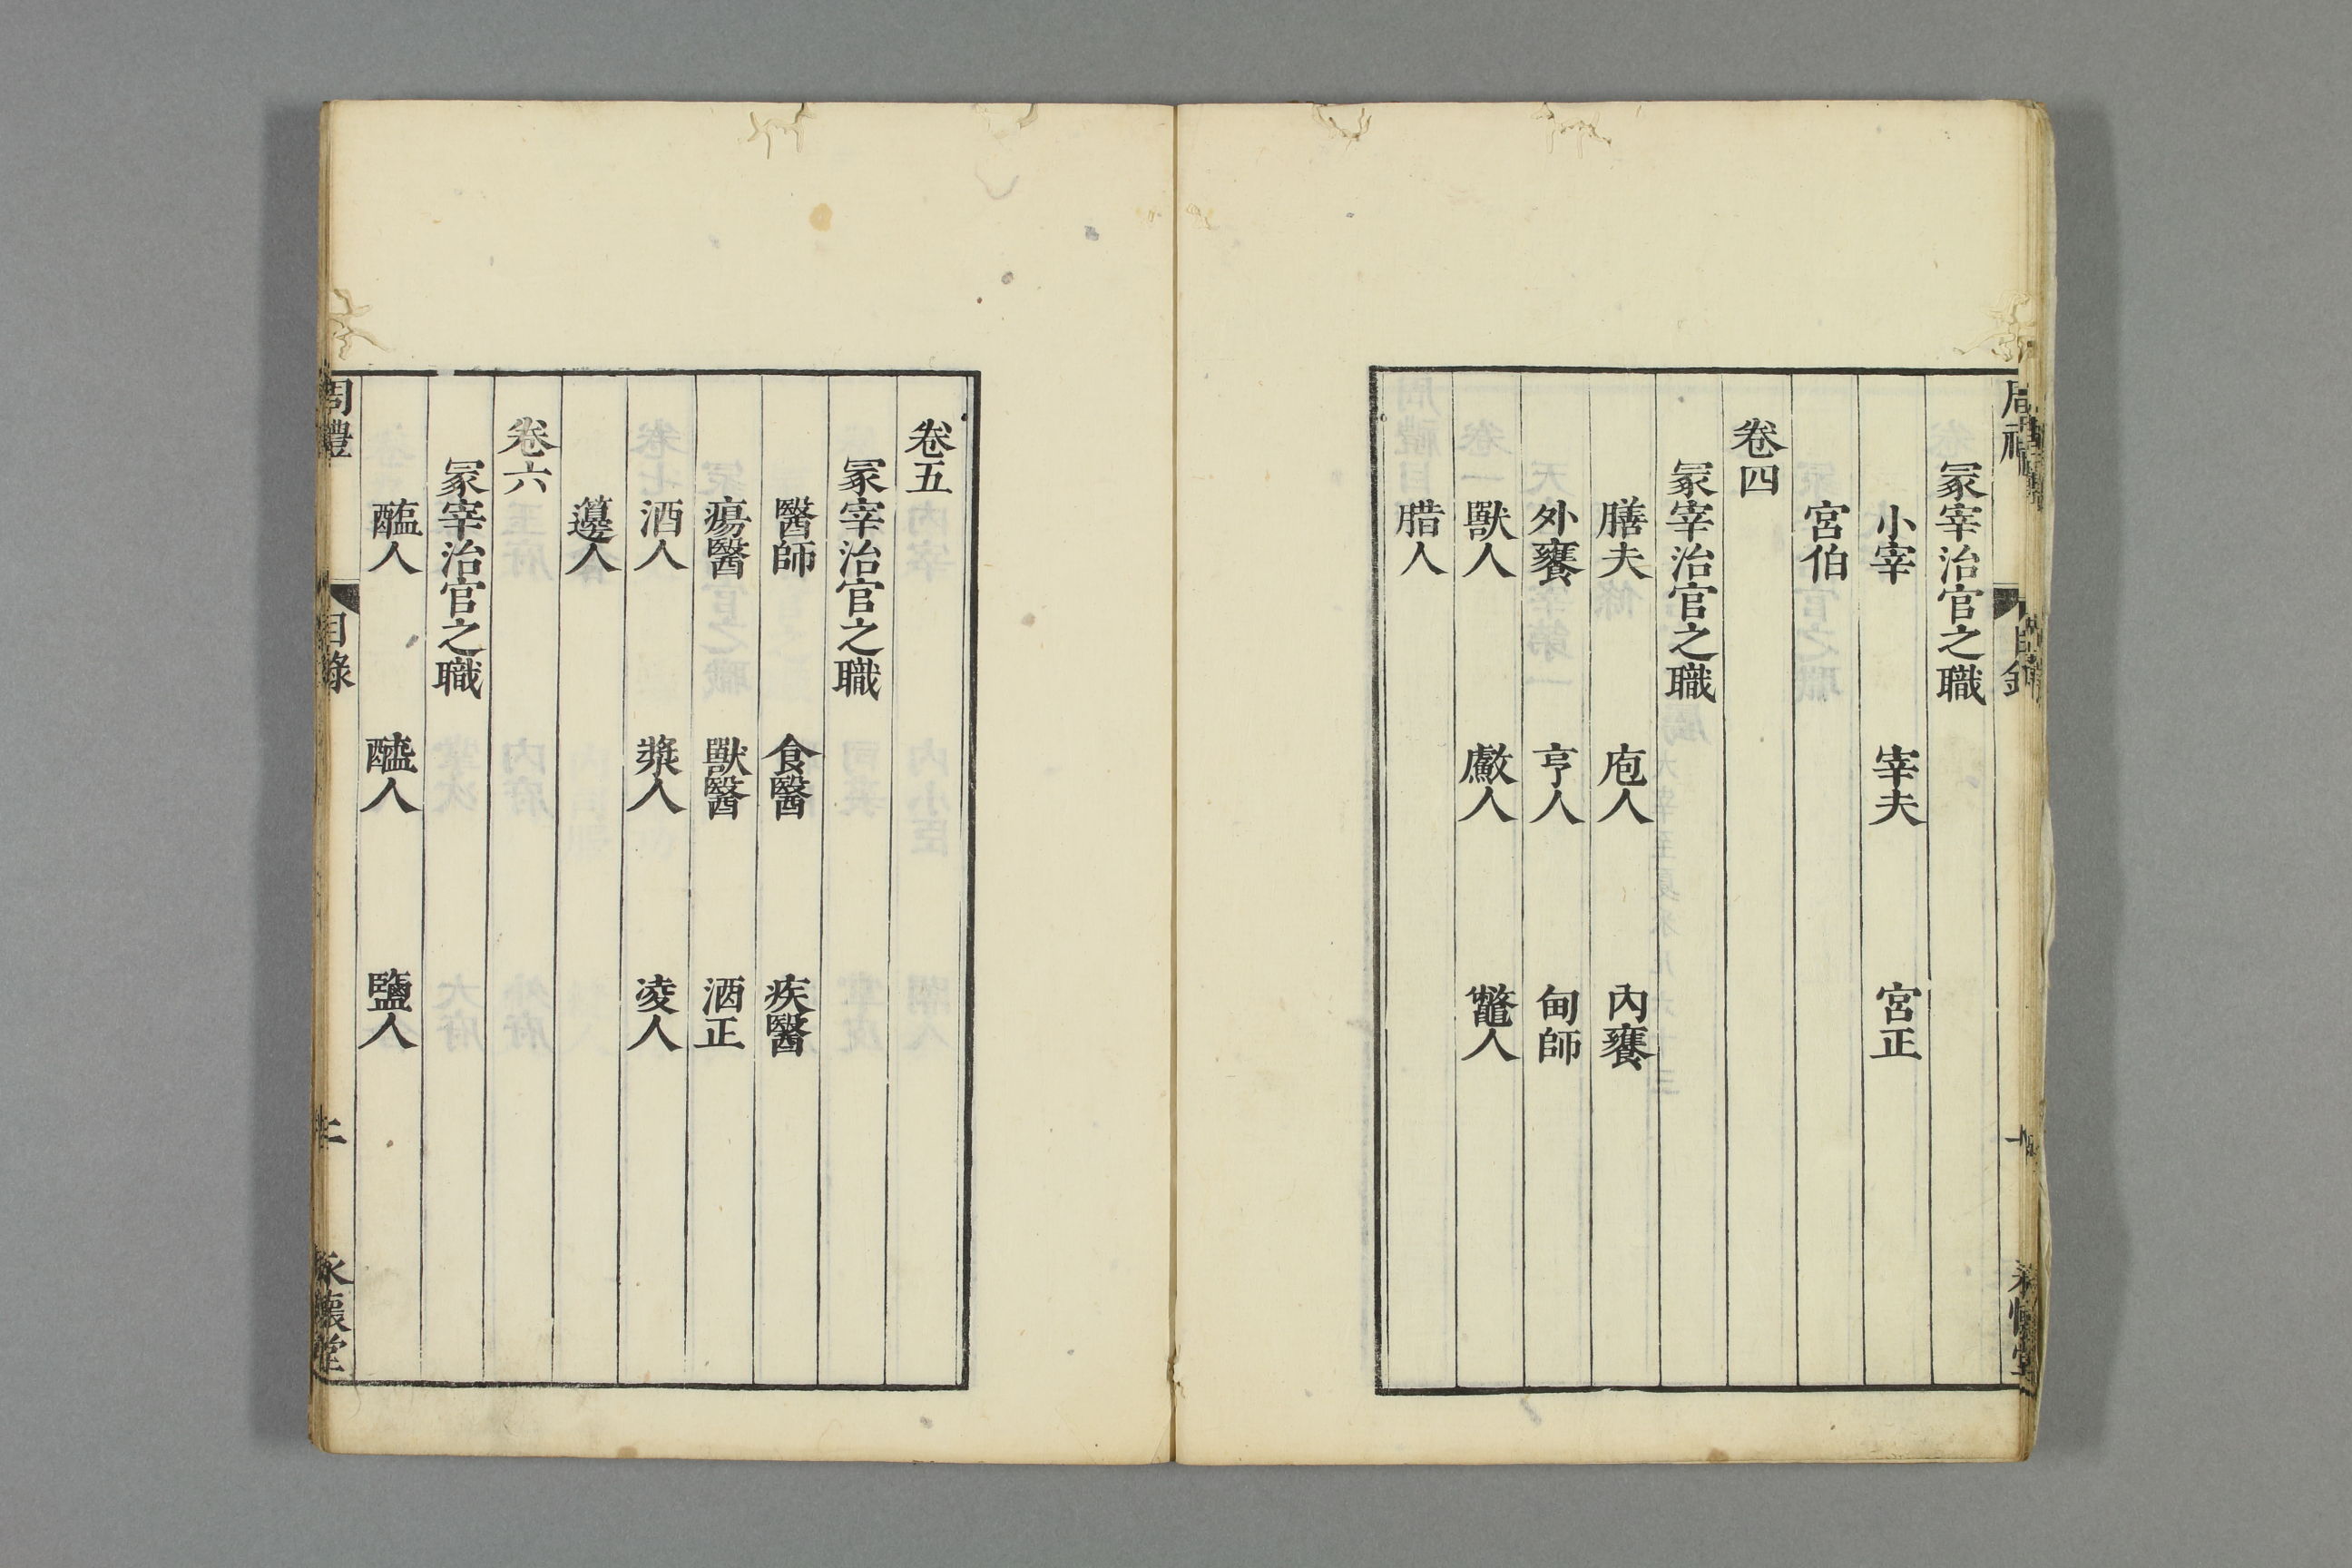 冢宰治官之職
小宰 宰夫 宮正
宮伯
卷四
冢宰治官之職
膳夫 庖人 內饔
外饔 亨人 甸師
獸人 䱷人 鼈人
腊人
卷五
冢宰治官之職
醫師 食醫 疾醫
瘍醫 獸醫 酒正
酒人 漿人 凌人
籩人
卷六
冢宰治官之職
醢人 醯人 鹽人
周禮 目錄 二 永懷堂